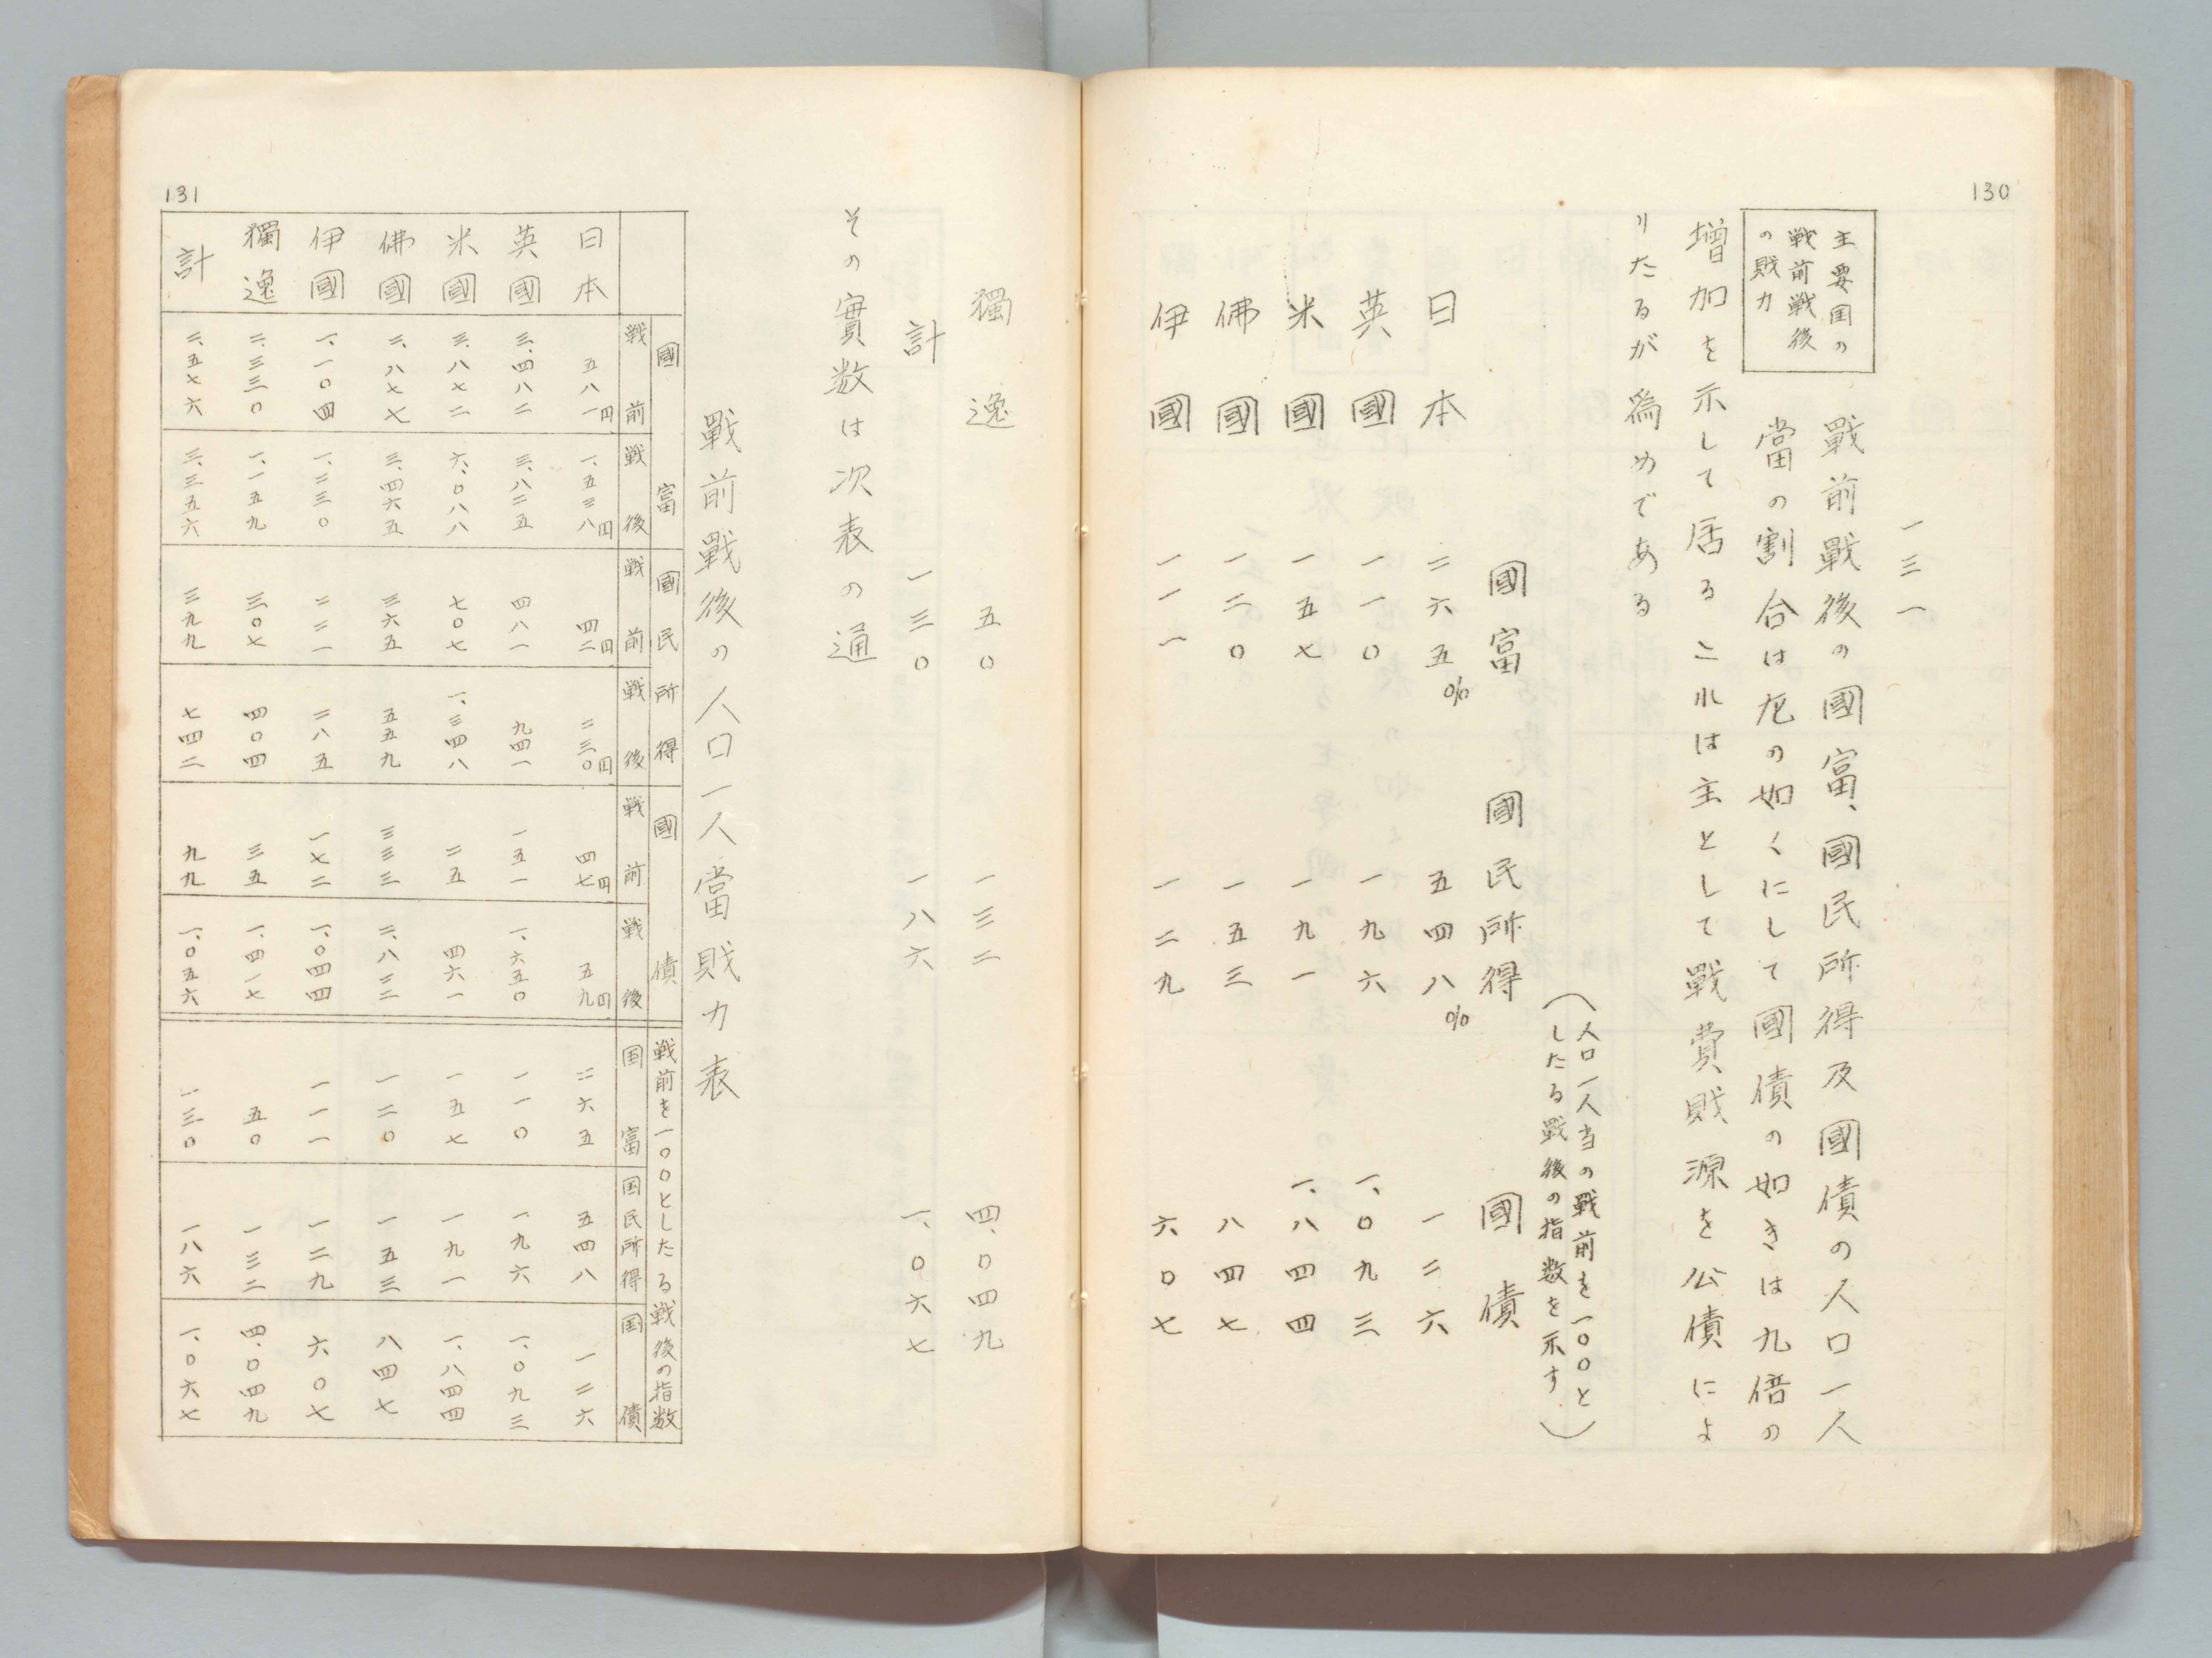 130
一三一
主要国の
戦前戦後
の財力
戰前戰後の國富、國民所得及國債の人口一人
當の割合は左の如くにして國債の如きは九倍の
増加を示して居るこれは主として戰費財源を公債によ
りたるが為めである
(人口一人当の戦前を一〇〇と
したる戦後の指数を示す)
國富 國民所得 國債
日本 二六五% 五四八% 一二六
英國 一一〇 一九六 一、〇九三
米國 一五七 一九一 一、八四四
佛國 一二〇 一五三 八四七
伊國 一一一 一二九 六〇七
獨逸 五〇 一三二 四、〇四九
計 一三〇 一八六 一、〇六七
その實数は次表の通
戰前戰後の人口一人當財力表
國富 國民所得 國債 戦前を一〇〇としたる戦後の指数
戦前 戦後 戦前 戦後 戦前 戦後 国富 国民所得 国債
日本 五八一円 一、五三八円 四二円 二三〇円 四七円 五九円 二六五 五四八 一二六
英國 三、四八二 三、八二五 四八一 九四一 一五一 一、六五〇 一一〇 一九六 一、〇九三
米國 三、八七二 六、〇八八 七〇七 一、三四八 二五 四六一 一五七 一九一 一、八四四
佛國 二、八七七 三、四六五 三六五 五五九 三三三 二、八二二 一二〇 一五三 八四七
伊國 一、一〇四 一、二三〇 二二一 二八五 一七二 一、〇四四 一一一 一二九 六〇七
獨逸 二、三三〇 一、一五九 三〇七 四〇四 三五 一、四一七 五〇 一三二 四、〇四九
計 二、五七六 三、三五六 三九九 七四二 九九 一、〇五六 一三〇 一八六 一、〇六七
131